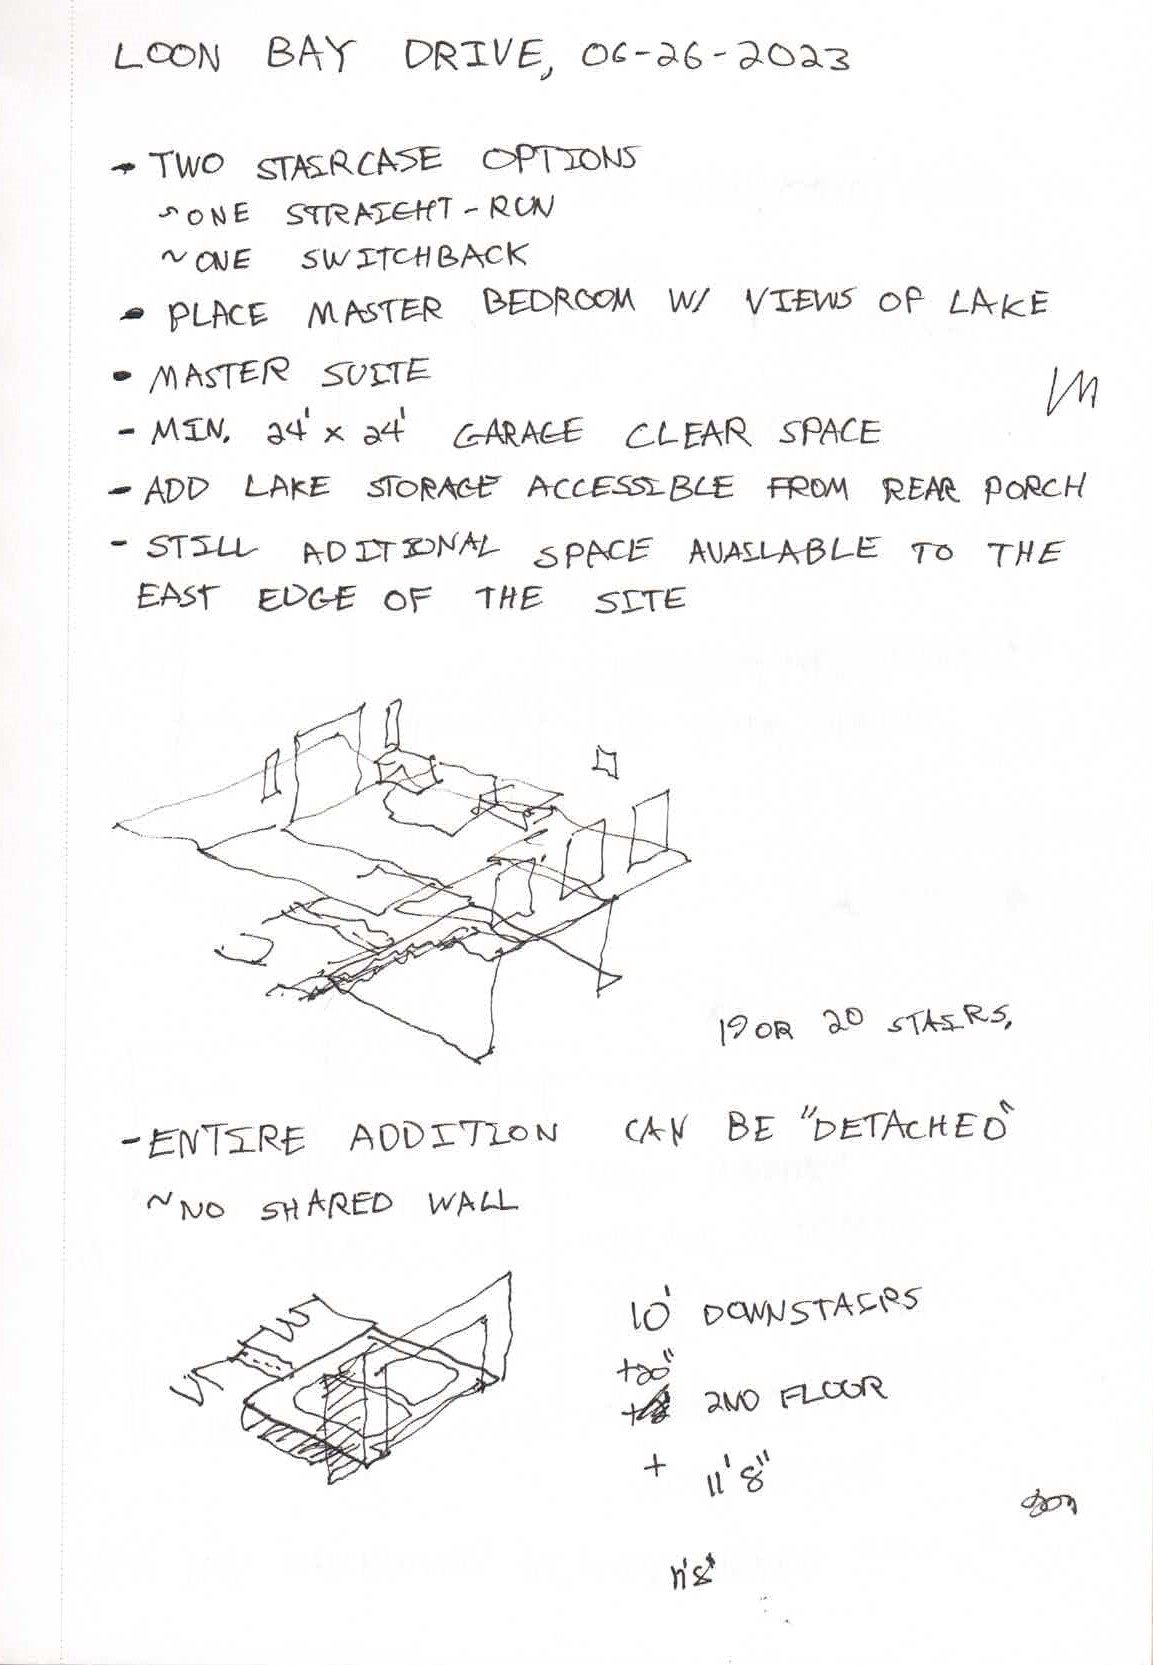 LOON BAY DRIVE, 06-26-2023
- TWO STAIRCASE OPTIONS
~ ONE STRAIGHT-RUN
~ ONE SWITCHBACK
• PLACE MASTER BEDROOM W/ VIEWS OF LAKE
• MASTER SUITE
- MIN. 24' x 24' GARAGE CLEAR SPACE
- ADD LAKE STORAGE ACCESSIBLE FROM REAR PORCH
- STILL ADITIONAL SPACE AVAILABLE TO THE
EAST EDGE OF THE SITE
19 OR 20 STAIRS.
- ENTIRE ADDITION CAN BE "DETACHED"
~ NO SHARED WALL
10' DOWNSTAIRS
+20"
2ND FLOOR
+ 11'8"
11'8"